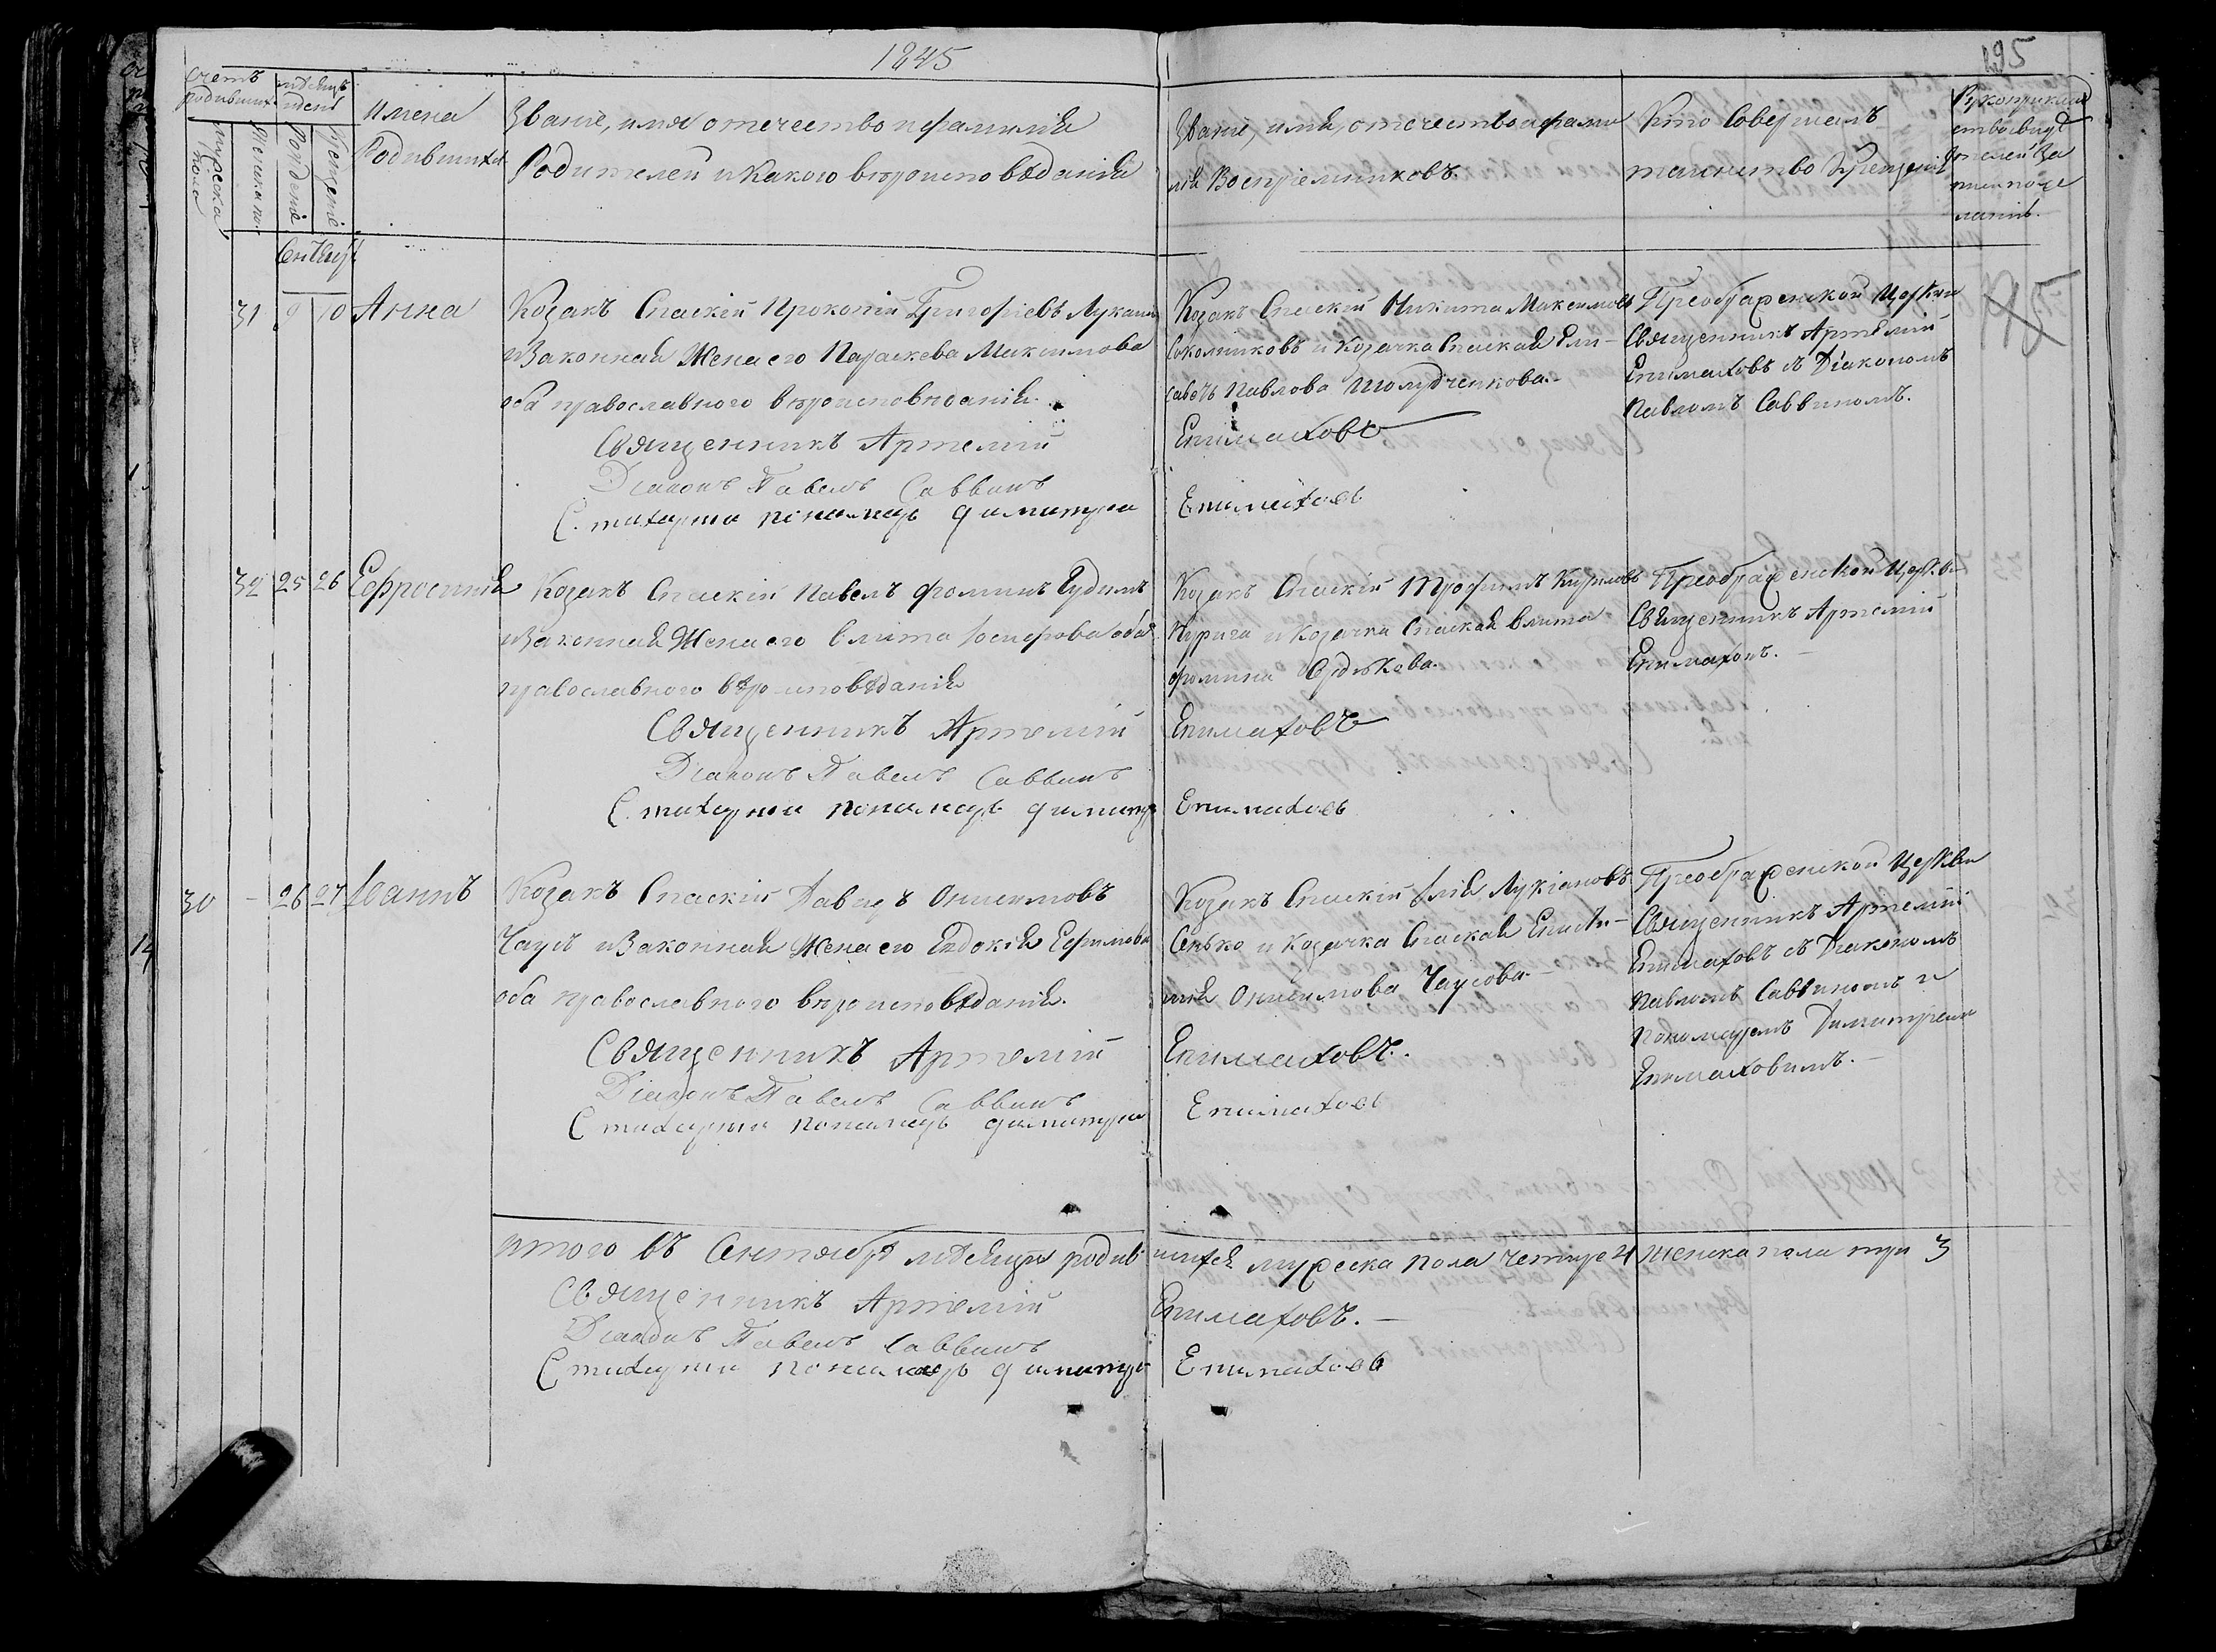 1845
195
счетъ родившихъ
мѣсяцъ и день
Имена
Родившихся
Званіе, имя отечество и фамилія
Родителей и какого вѣроисповѣданія
Званіе, имя, отечество и фами
лія Воспріемниковъ
Кто Совершалъ
таинство Крещенія
Рукоприклад
ство свидѣ
телей За
писи по же
ланію.
Мужеска пола
Женска по.
Рожденіе
Крещеніе
Сентябрь
31 9 10 Анна
Козакъ Спаскій Прокопій Григорьевъ
и Законная Жена его Параскева Максимова
оба православного вѣроисповѣданія.
Священникъ Артемій
Діаконъ Павелъ Саввинъ
Стихарный пономарь Димитрій
Козакъ Спаскій Никита Максимовъ
Соколниковъ и Козачка Спаская Ели-
саветъ Павлова
Епимаховъ
Епимаховъ
Преображенской Церкви
Священникъ Артемій
Епимаховъ съ Діакономъ
Павломъ Саввиномъ.
95
32 25 26 Ефросинія
Козакъ Спаскій Павелъ Фоминъ
и Законная Жена его Улита Іосифова оба
православного вѣроисповѣданія
Священникъ Артемій
Діаконъ Павелъ Саввинъ
Стихарный пономарь Димитрій
Козакъ Спаскій Трофимъ Кириловъ
и Козачка Спаская Улита
Фомина
Епимаховъ
Епимаховъ
Преображенской Церкви
Священникъ Артемій
Епимаховъ.
30 - 26 27 Іоаннъ
Козакъ Спаскій Давидъ Онисимовъ
Чаусъ и Законная Жена его Евдокія Ефимова
оба православного вѣроисповѣданія.
Священникъ Артемій
Діаконъ Павелъ Саввинъ
Стихарный пономарь Димитрій
Козакъ Спаскій Илія Лукіановъ
Сенько и Козачка Спаская Еписти-
мія Онисимова Чаусова
Епимаховъ.
Епимаховъ
Преображенской Церкви
Священникъ Артемій
Епимаховъ съ Діакономъ
Павломъ Саввиномъ и
Пономаремъ Димитріемъ
Епимаховымъ.
14
итого въ Сентябрѣ мѣсяцѣ родив
шихся мужеска пола четыре 4 женска пола три 3
Священникъ Артемій
Епимаховъ.
Діаконъ Павелъ Саввинъ
Стихарный пономарь Димитрій
Епимаховъ